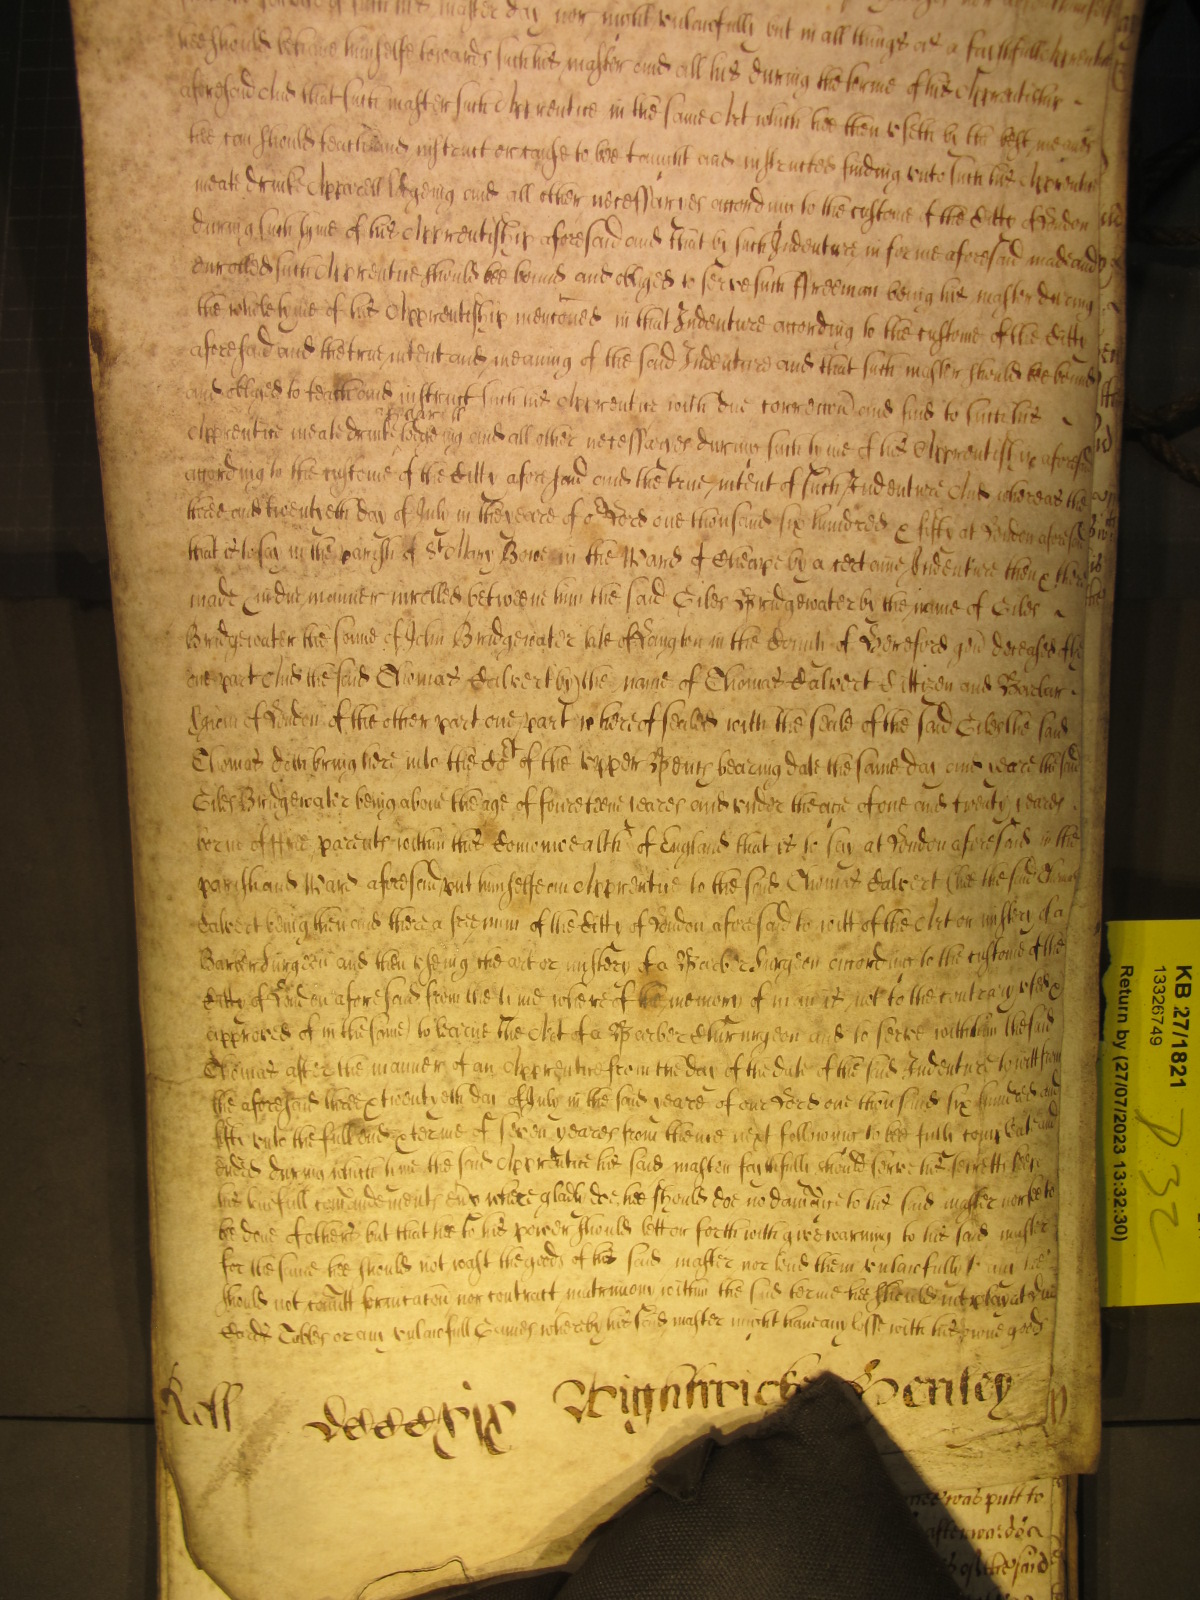 such his master day nor night unlawfully but in all things as a faithfull Apprentice
hee should behave himselfe towards such his master and all his during the terme of his Apprentiship
aforesaid And that such master such Apprentice in the same Art which hee then useth by the best meanes
hee can should teach and instruct or cause to bee taught and instructed finding unto such his Apprentice
meate drinke Apparell lodgeing and all other necessaries according to the custome of the Citty of London
during such tyme of his Apprentiship aforesaid and that by such Indenture in forme aforesaid made and
enrolled such Apprentice should bee bound and obliged to serve such Freeman being his master during
the whole tyme of his Apprentiship menconed in that Indenture according to the custome of the Citty
aforesaid and the true intent and meaning of the said Indenture and that such master should bee bound
and obliged to teach and instruct such his Apprentice with due correccon and find to such his
apparell
Apprentice meate drinke lodgeing and all other necessaryes during such tyme of his Apprentiship aforesaid
according to the custome of the Citty aforesaid and the true intent of such Indenture And whereas the
three and twentyeth day of July in the yeare of or Lord one thousand six hundred & fifty at London aforesaid
that is to say in the parish of St Mary Bowe in the Ward of Cheape by a certaine Indenture then & there
made & in due manner inrolled betweene him the said Giles Bridgewater by the name of Giles
Bridgewater the sonne of John Bridgewater late of in the County of Hereford gen deceased of the
one part And the said Thomas Calvert by the name of Thomas Calvert Cittizen and Barber
of London of the other part one part whereof sealed with the seale of the said Giles the said
Thomas doth bring here into the Cort of the Upper Bench bearing date the same day and yeare the said
Giles Bridgewater being above the age of fourteene yeares and under the age of one and twenty yeares
borne of free parents within this Comonwealth of England that is to say at London aforesaid in the
parish and Ward aforesaid put himselfe an Apprentice to the said Thomas Calvert (hee the said Thomas
Calvert being then and there a freeman of the Citty of London aforesaid to witt of the Art or mistery of a
Barber Surgeon and then useing the art or mistery of a Barber Surgeon according to the custome of the
Citty of London aforesaid from the time whereof the memory of man is not to the contrary used &
approved of in the same) to learne the Art of a Barber Chirurgeon and to serve with him the said
Thomas after the manner of an Apprentice from the day of the date of the said Indenture to witt from
the aforesaid three & twentyeth day of July in the said yeare of our Lord one thousand six hundred and
fifty unto the full end & terme of seven yeares from thence next following to bee fully compleat and
ended during which tyme the said Apprentice his said master faithfully should serve his secretts keep
his lawfull comandements every where gladly doe hee should doe no dammage to his said master nor see to
be done of others but that hee to his power should lett or forthwith give warning to his said master
for the same hee should not wast the goods of his said master nor lend them unlawfully to any hee
should not comitt fornicacon nor contract matrimony within the said terme hee should not play at Dice
Cards Tables or any unlawfull Games whereby his said master might have any losse with his owne goods
Roll
Wightwick Henley
was putt to
afterwards
of the said
KB 27/1821
13326749
Return by (27/07/2023 13:32:30)
D32